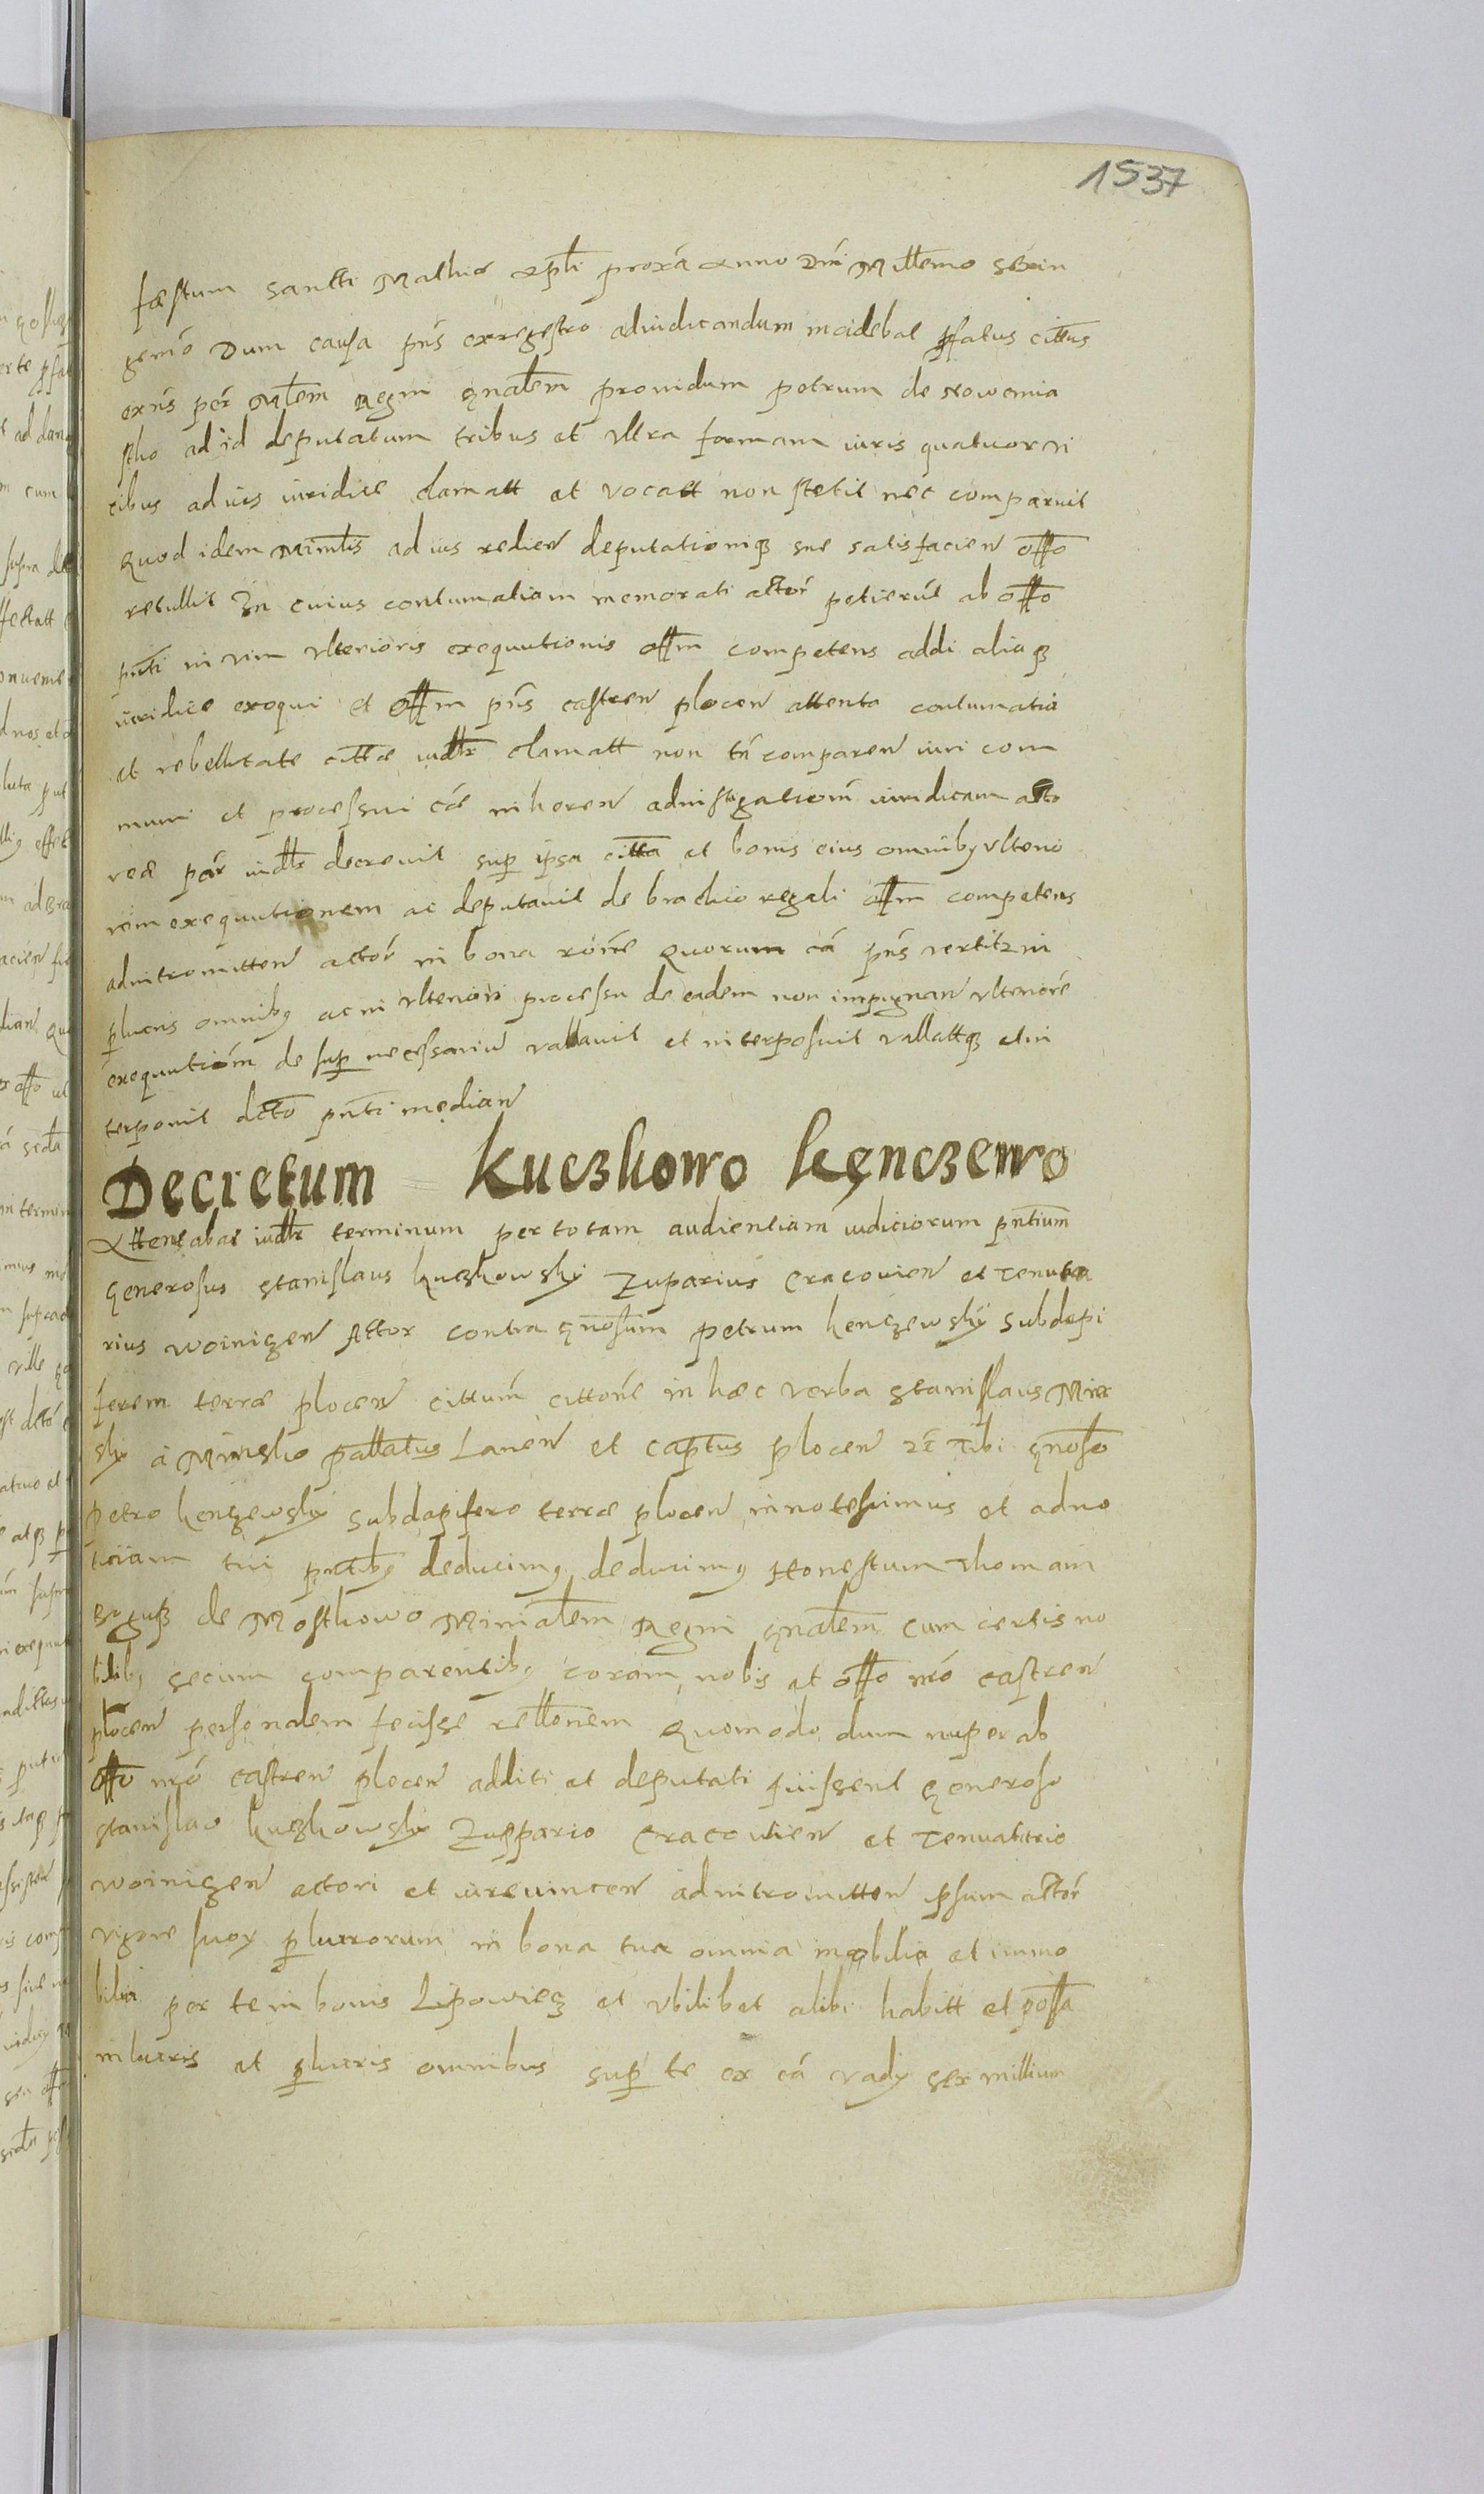 1537
festum sancti Mathiæ Apli proxã Anno Dñi Millemo sexin
gemõ Dum causa pñs ex regestro adiudicandum incidebat pfatus cittus
exñs per Mlem Regni gnalem prouidum petrum de Nowemia
stho ad id deputatum tribus et vltra formam iuris quatuor vi
cibus ad ius iuridice clamatt et vocatt non stetit nec comparuit
Quod idem Minrlis ad ius redien deputationiq3 sue satisfacien offo
retullit In cuius contumatiam memorati actor petierut ab offo
pñti in vim vlterioris exequutionis offm competens addi aliaq3
iuridice exequi et offm pñs castren plocen attenta contumatia
et rebellitate cittæ iudlr clamatt non tñ comparen iuri com
muni et processui cæ inheren ad instigationem iuridicam acto
reæ par iudlr decreuit sup ipsa citta et bonis eius omniby vlterio
rem exequutionem ac deputauit de brachio regali offm competens
ad intromitten actor in bona rõne Quorum cã pñs vertitur in
plucris omniby ac in vlteriori processu de eadem non impugnan vlteriore
exequutiom de sup necessariu vallauit et interposuit vallatq3 et in
terponit dcto pñti median
Decretum Kuczkowo Kęnczewo
Attentabat iudlr terminum per totam audientiam iudiciorum pñtium
Generosus Stanislaus kuczkowsky Zuparius Cracouien et Tenuta
rius woinicen Actor contra gnosum Petrum kenczewsky Subdapi
ferem terræ plocen cittum cittone in hæc verba Stanislaus Min
sky à Minsko pallatus Lancn et Captus plocen 2c Tibi gnoso
Petro kenczewsky Subdapifero terræ plocen innotessimus et ad no
titiam tui pñtiby deducimy deducimy Honestum Thomam
de Mosthowo Minialem Regni gnalem cum certis no
biliby secum comparentiby coram nobis et offo nro castren
plocen personalem fecisse relloñem Quomodo dum nuper ab
offo nro castren plocen additi et deputati fuissent Generoso
Stanislao kuczkowsky Zuppario Cracouien et Tenutario
woinicen actori et iureuincen ad intromitten ipsum actor
vigore suoy plucrorum in bona tua omnia mobilia et immo
bilia per te in bonis Lipowiec et vbilibet alibi habitt et possa
in lucris et plucris omnibus sup te ex cã vady sex millium